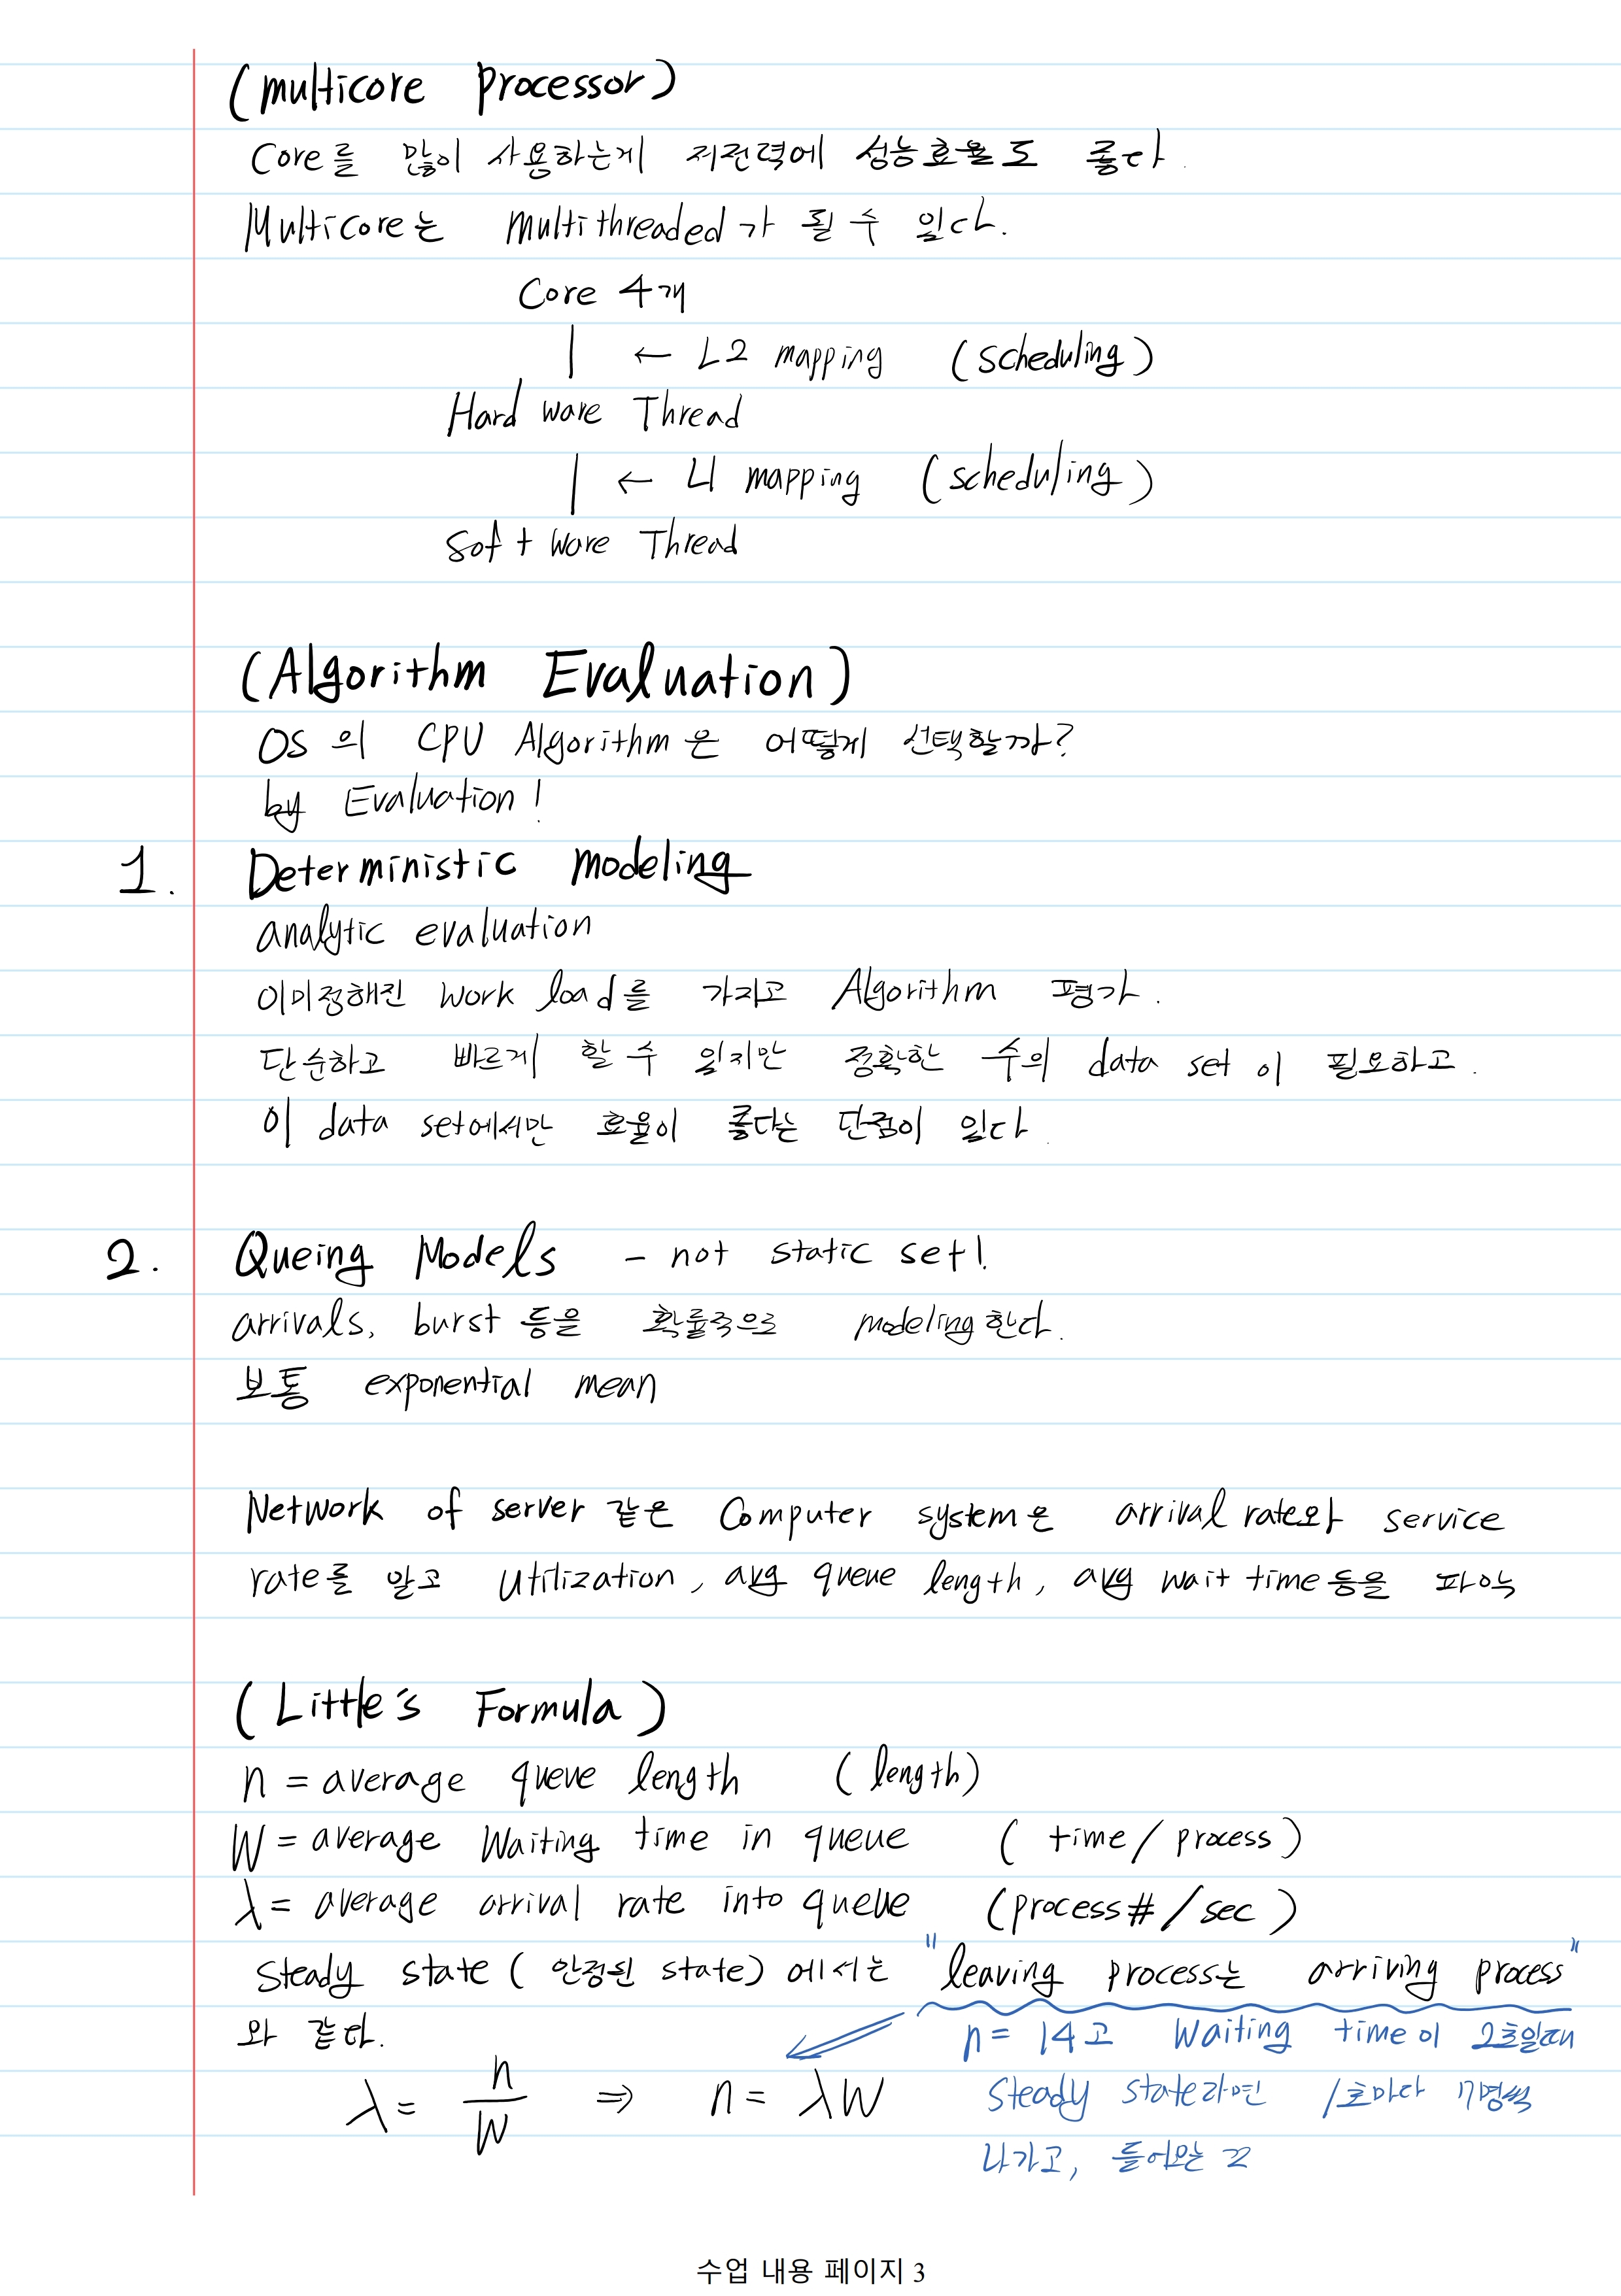 (multicore processor)
Core를 많이 사용하는게 저전력에 성능효율도 좋다.
Multicore는 multithreaded가 될 수 있다.
Core 4개
| ← L2 mapping (scheduling)
Hard ware Thread
| ← L1 mapping (scheduling)
Soft ware Thread
(Algorithm Evaluation)
OS 의 CPU Algorithm은 어떻게 선택할까?
by Evaluation!
1. Deterministic modeling
analytic evaluation
이미정해진 work load를 가지고 Algorithm 평가.
단순하고 빠르게 할 수 있지만 정확한 수의 data set 이 필요하고.
이 data set에서만 효율이 좋다는 단점이 있다.
2. Queing Models - not static set!
arrivals, burst 등을 확률적으로 modeling한다.
보통 exponential mean
Network of server 같은 Computer system은 arrival rate와 service
rate를 알고 Utilization, avg queue length, avg wait time등을 파악
(Little's Formula)
n = average queue length (length)
W = average Waiting time in queue (time/process)
λ = average arrival rate into queue (process#/sec)
Steady state (안정된 state) 에서는 "leaving process는 arriving process"
와 같다.
n = 14고 Waiting time이 2초일때
λ = n/W ⇒ n = λW
Steady state라면 1초마다 7명씩
나가고, 들어오는 꼬
수업 내용 페이지 3